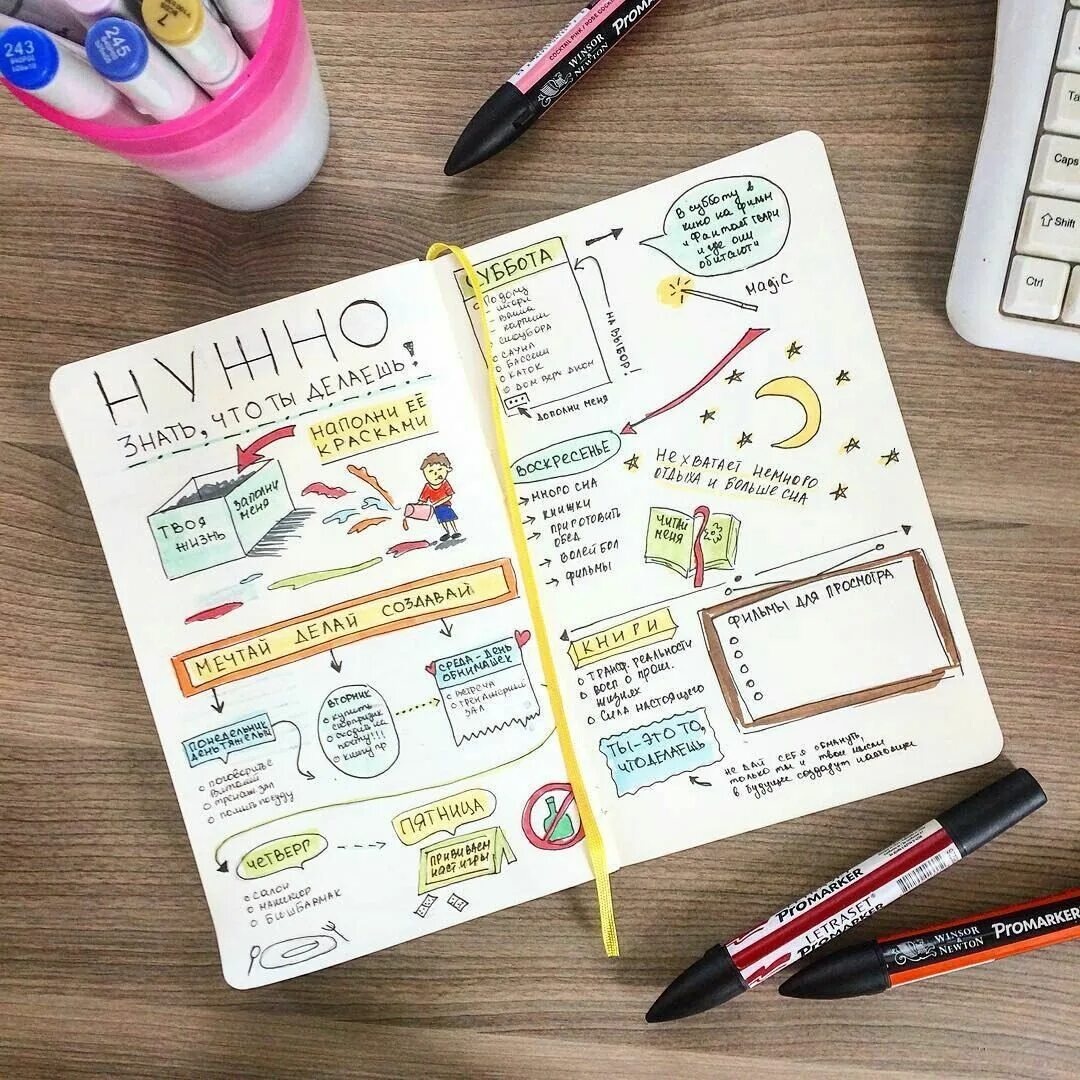 243
245
7
COCKTAIL PINK / ROSE COCKTAIL
WINSOR
& NEWTON
PROMARKER
Caps
Shift
Ctrl
НУЖНО
ЗНАТЬ, ЧТО ТЫ ДЕЛАЕШЬ!
НАПОЛНИ ЕЁ
КРАСКАМИ
ТВОЯ
ЖИЗНЬ
ЗАПОЛНИ
МЕНЯ
МЕЧТАЙ ДЕЛАЙ СОЗДАВАЙ
ПОНЕДЕЛЬНИК
ДЕНЬ ТЯЖЕЛЫЙ
ВИТАЛИЙ
ТРЕНАШ ЗАЛ
ПОМЫТЬ ПОСУДУ
ВТОРНИК
КУПИТЬ
СЮРПРИЗИК
СХОДИТЬ НА
ПОЧТУ!!!
СРЕДА - ДЕНЬ
ОБНИМАШЕК
ВСТРЕЧА
ТРЕНАЖЕРНЫЙ
ЗАЛ
ЧЕТВЕРГ
САЛОН
МАНИКЮР
БИШБАРМАК
ПЯТНИЦА
ПРИНИМАЕМ
НАСТ ИГРЫ
СУББОТА
ПО ДОМУ
- ШТОРЫ
- ВАННА
- КАРТИНЫ
САУНА
БАССЕЙН
КАТОК
ДОМ ВЕРХ ДНОМ
...
ДОПОЛНИ МЕНЯ
НА ВЫБОР!
В СУББОТУ В
КИНО НА ФИЛЬМ
"ФАНТАСТ ТВАРИ
И ГДЕ ОНИ
ОБИТАЮТ"
MAGIC
ВОСКРЕСЕНЬЕ
МНОГО СНА
КНИЖКИ
ПРИГОТОВИТЬ
ОБЕД
ВОЛЕЙБОЛ
ФИЛЬМЫ
НЕ ХВАТАЕТ НЕМНОГО
ОТДЫХА И БОЛЬШЕ СНА
ЧИТАЙ
МЕНЯ
КНИГИ
ТРАНСФ. РЕАЛЬНОСТИ
ВОСП О ПРОШ.
ЖИЗНЯХ
СИЛА НАСТОЯЩЕГО
ФИЛЬМЫ ДЛЯ ПРОСМОТРА
ТЫ - ЭТО ТО,
ЧТО ДЕЛАЕШЬ
НЕ ДАЙ СЕБЯ ОБМАНУТЬ,
ТОЛЬКО ТЫ И ТВОИ МЫСЛИ
В БУДУЩЕЕ СОЗДАДУТ НАСТОЯЩЕЕ
PROMARKER
LETRASET
PROMARKER
WINSOR
& NEWTON
PROMARKER